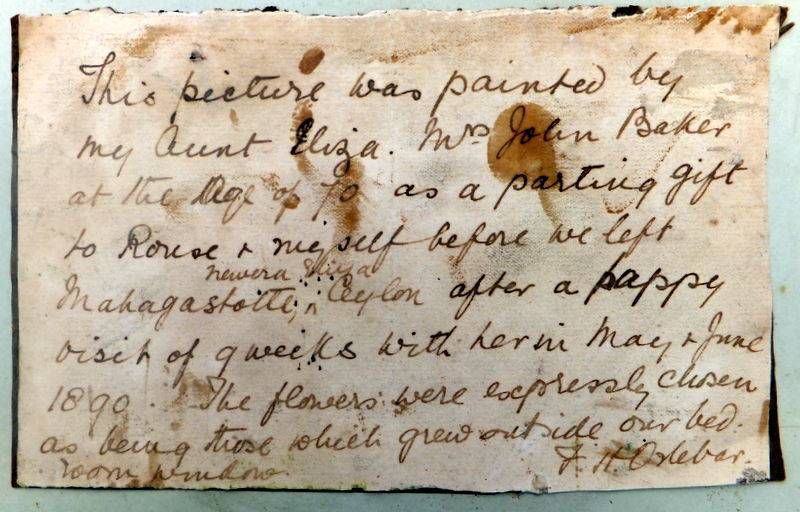 This picture was painted by
my Aunt Eliza. Mrs John Baker
at the Age of 70 as a parting gift
to Rouse & myself before we left
newera Eliya
Mahagastotte, ^ Ceylon after a happy
visit of 9 weeks with her in May & June
1890. The flowers were expressly chosen
as being those which grew outside our bed-
room window
F. H. Orlebar.